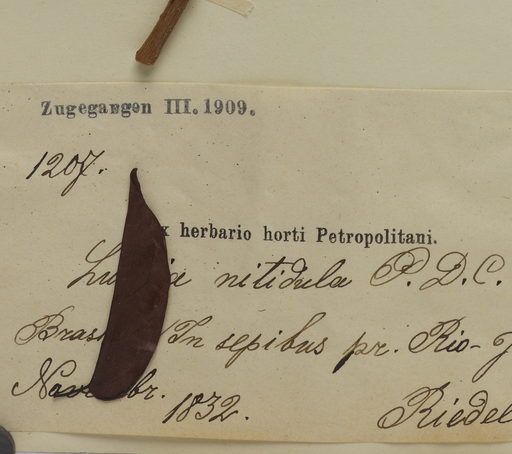 Zugegangen III. 1909.
1207.
x herbario horti Petropolitani.
nitidula P. D. C.
Bras In sepibus pr. Rio-J
Novembr. 1832.
Riedel